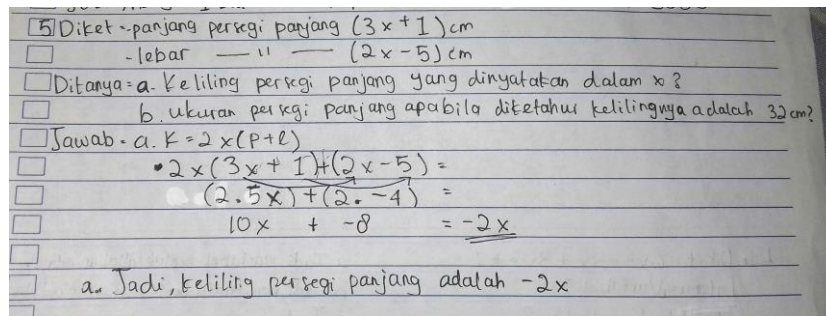 5 Diket : - panjang persegi panjang (3x + 1) cm
- lebar — " — (2x - 5) cm
Ditanya = a. Keliling persegi panjang yang dinyatakan dalam x ?
b. ukuran persegi panjang apabila diketahui kelilingnya adalah 32 cm?
Jawab = a. K = 2 x (P + l)
• 2 x (3x + 1) + (2x - 5) =
(2 . 5x) + (2 . -4) =
10x + -8 = -2x
a. Jadi, keliling persegi panjang adalah -2x